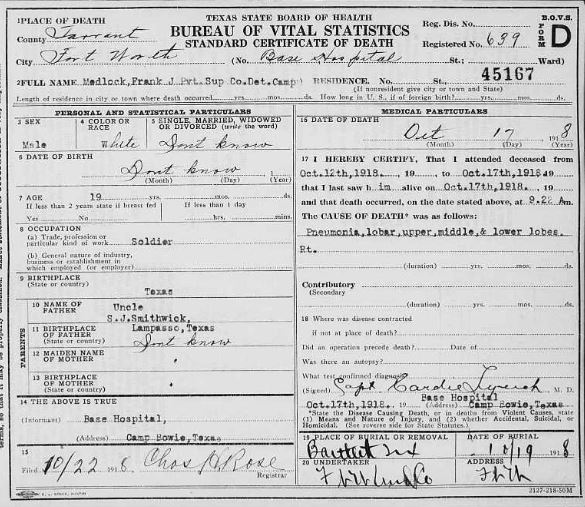 TEXAS STATE BOARD OF HEALTH
BUREAU OF VITAL STATISTICS
STANDARD CERTIFICATE OF DEATH
B.O.V.S.
FORM D
1 PLACE OF DEATH
County Tarrant
City Fort Worth (No. Base Hospital St.; Ward)
Reg. Dis. No.
Registered No. 639
45167
2 FULL NAME Medlock, Frank J. Pvt. Sup Co. Det. Camp RESIDENCE. No. St.,
(If nonresident give city or town and State)
Length of residence in city or town where death occurred yrs. mos. ds. How long in U. S., if of foreign birth? yrs. mos. ds.
PERSONAL AND STATISTICAL PARTICULARS
3 SEX
Male
4 COLOR OR RACE
White
5 SINGLE, MARRIED, WIDOWED OR DIVORCED (write the word)
Dont know
6 DATE OF BIRTH
Dont know
(Month) (Day) (Year)
7 AGE 19 yrs. mos. ds.
If less than 2 years state if breast fed If less than 1 day
Yes No hrs. mins.
8 OCCUPATION
(a) Trade, profession or
particular kind of work Soldier
(b) General nature of industry,
business or establishment in
which employed (or employer)
9 BIRTHPLACE
(State or country)
Texas
PARENTS
10 NAME OF FATHER
Uncle
S.J.Smithwick,
11 BIRTHPLACE OF FATHER
(State or country)
Lampasso, Texas
Dont know
12 MAIDEN NAME OF MOTHER
"
13 BIRTHPLACE OF MOTHER
(State or country)
"
14 THE ABOVE IS TRUE
(Informant) Base Hospital,
(Address) Camp Bowie, Texas
15
Filed 10/22 1918 Chas H Rose
Registrar
MEDICAL PARTICULARS
16 DATE OF DEATH
Oct 17 1918
(Month) (Day) (Year)
17 I HEREBY CERTIFY, That I attended deceased from
Oct.12th,1918. , 19 , to Oct.17th,1918. 19
that I last saw h im alive on Oct.17th,1918. , 19
and that death occurred, on the date stated above, at 8.22 Am.
The CAUSE OF DEATH* was as follows:
Pneumonia, lobar, upper, middle, & lower lobes.
Rt.
(duration) yrs. mos. ds.
Contributory
(Secondary)
(duration) yrs. mos. ds.
18 Where was disease contracted
if not at place of death?
Did an operation precede death? Date of
Was there an autopsy?
What test confirmed diagnosis?
(Signed) Capt M. D.
Base Hospital
Oct.17th,1918. , 19 (Address) Camp Bowie, Texas
*State the Disease Causing Death, or in deaths from Violent Causes, state
(1) Means and Nature of Injury, and (2) whether Accidental, Suicidal, or
Homicidal. (See reverse side for State Statutes.)
19 PLACE OF BURIAL OR REMOVAL
Bartlett Tex
DATE OF BURIAL
10/19 1918
20 UNDERTAKER
ADDRESS
FtWth
2127-218-50M